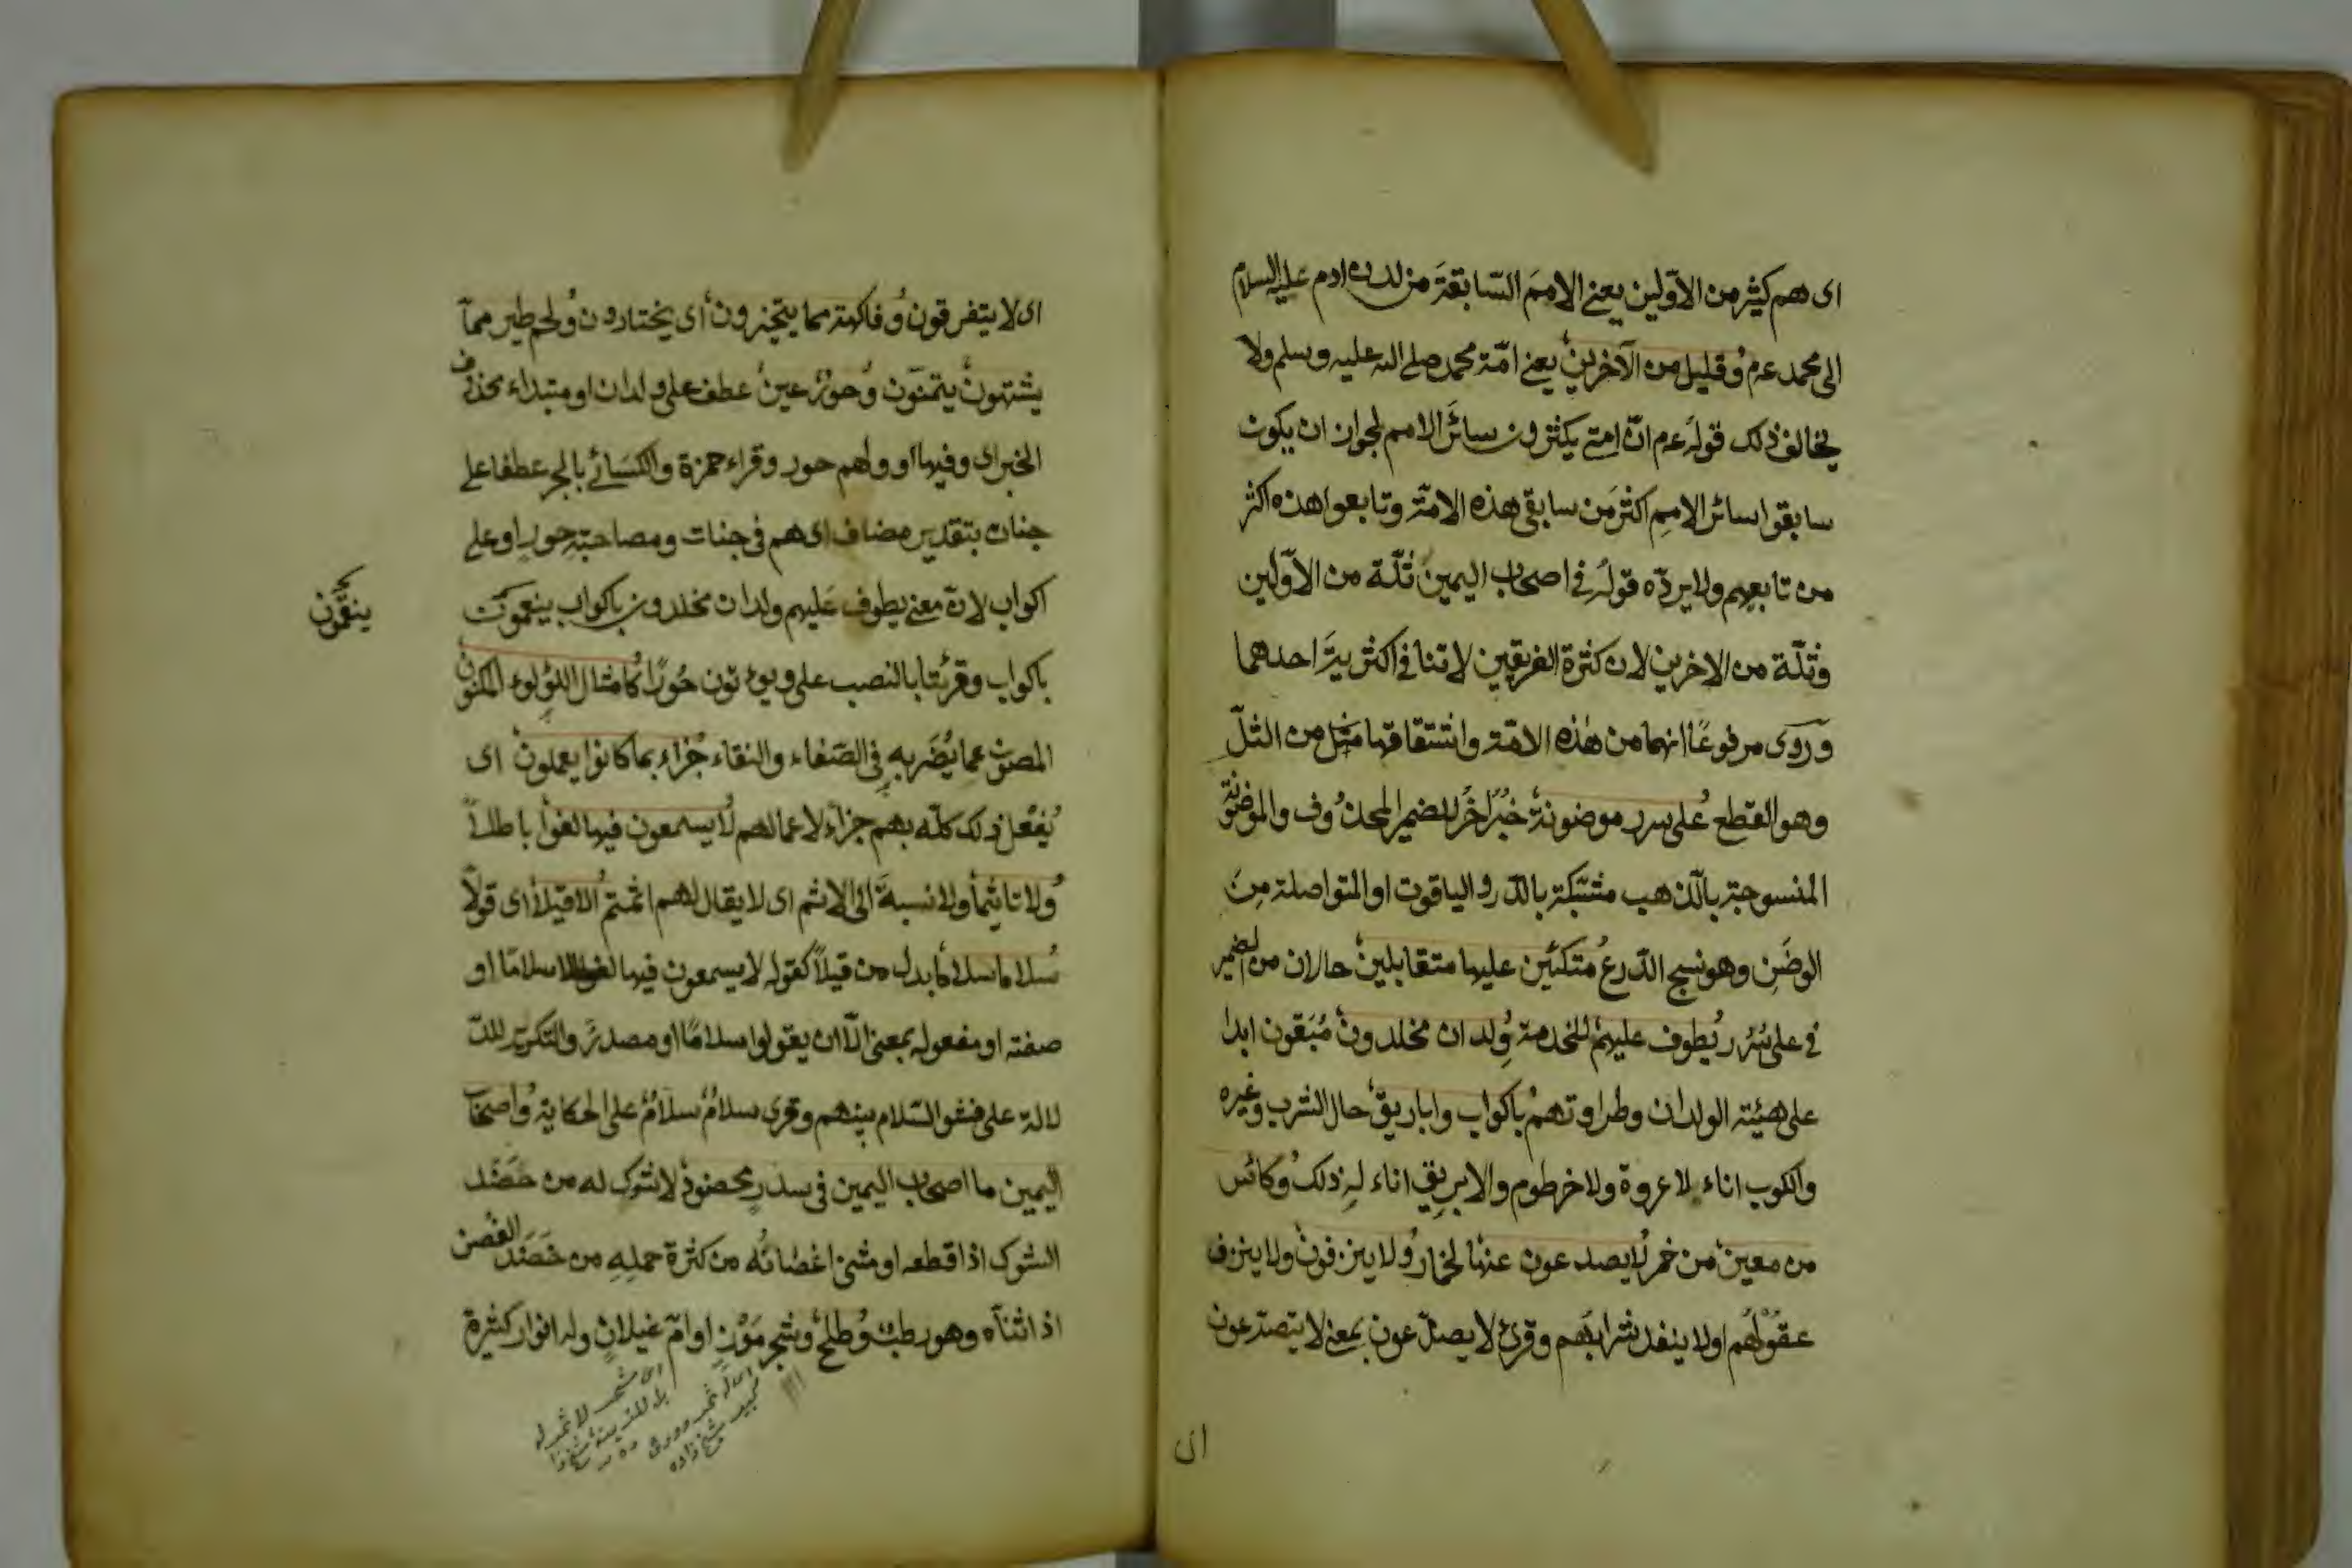 اى هم كثير من الاوّلين يعنى الامم السّابقة من لدن ادم عليه السلام
الى محمد عم وقليل من الآخرين يعنى امّة محمد صلى الله عليه وسلم ولا
يخالف ذلك قوله عم انّ امتى يكثرون سائر الامم لجواز ان يكون
سابقوا سائر الامم اكثر من سابقى هذه الامّة وتابعوا هذه اكثر
من تابعهم ولا يردّه قوله فى اصحاب اليمين ثلّة من الاوّلين
وثلّة من الاخرين لان كثرة الفريقين لا تنافى اكثريّة احدهما
وروى مرفوعًا انهما من هذه الامّة واشتقاقها من الثلّ
وهو القطع على سرر موضونة خبر آخر للضمير المحذوف والموضونة
المنسوجة بالذهب مشبّكة بالدّر والياقوت او المتواصلة مِنَ
الوضَن وهو نسج الدّرع متكئين عليها متقابلين حالان من الضمير
فى على سُرُر يطوف عليهم للخدمة ولدان مخلدون مُبَقون ابدا
على هيئة الولدان وطراوتهم باكواب واباريق حال الشرب وغيره
والكوب اناء لا عروة ولا خرطوم والابريق اناء له ذلك وكائس
من معين من خمر لا يصدعون عنها لخمار ولا ينزفون ولا ينزف
عقولهم او لا ينفد شرابهم وقرئ لا يصدّعون بمعنى لا يتصدّعون
اى
اى لا يتفرقون وفاكهة مما يتخيرون اى يختارون ولحم طير ممّا
يشتهون يتمنّون وحورٌ عينٌ عطف على ولدان او مبتداء محذوف
الخبر اى وفيها او ولهم حور وقراء حمزة والكسائى بالجر عطفا على
جنات بتقدير مضاف اى هم فى جنات ومصاحبة حورٍ او على
اكواب لانّ معنى يطوف عليهم ولدان مخلدون باكواب ينعمون
باكواب وقرئتا بالنصب على ويؤتون حُورًا كامثال اللؤلوء المكنون
المصون عما يُضَر به فى الصّفاء والنقاء جزاء بما كانوا يعملون اى
يُفعل ذلك كلّه بهم جزاء لاعمالهم لا يسمعون فيها لغوا باطلاً
ولا تاثيما ولا نسبة الى الاثم اى لا يقال لهم اثمتم الا قيلا اى قولاً
سلاما سلاما بدل من قيلاً كقوله لا يسمعون فيها لغوا الا سلامًا او
صفته او مفعوله بمعنى الّا ان يقولوا سلامًا او مصدر والتكرير للدّ
لالة على فشو السّلام بينهم وقرى سلامٌ سلامٌ على الحكاية واصحاب
اليمين ما اصحاب اليمين فى سدر مخضود لا شوك له من خَضَد
الشوك اذا قطعه او مثنى اغصانُه من كثرة حمله من خَضَدَ الغصن
اذا ثناه وهو رطب وطلح وشجر مَوْزٍ او امّ غيلان وله انوار كثيرة
ينعّمون